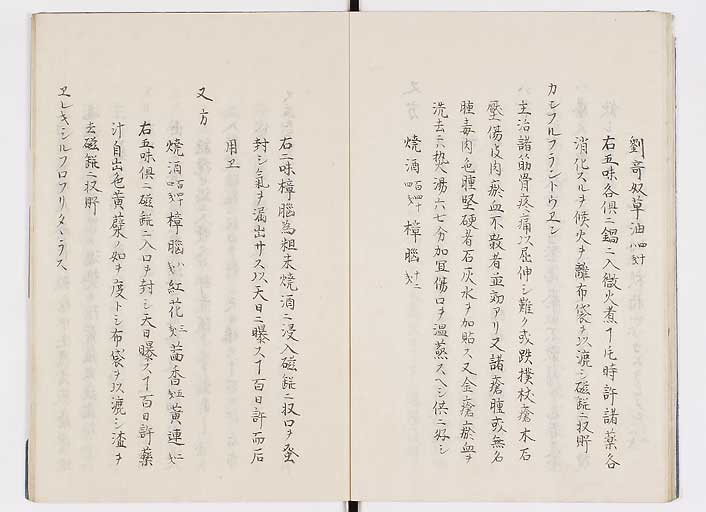 劉寄奴草油
右五味各俱ニ鍋ニ入微火煮ヿ片時許諸薬各
消化スルヲ候火ヲ離布袋ヲ以漉シ磁缻ニ収貯
カンフルフラントウヱン
主治諸筋骨疼痛以屈伸シ難ク或跌撲杖瘡木石
壓傷皮肉瘀血不散者並効アリ又諸瘡腫或無名
腫毒肉色腫堅硬者石灰水ヲ加貼ス又金瘡瘀血ヲ
洗去ニ熱湯六七分加冝傷口ヲ温蒸スヘシ供ニ好シ
又方
焼酒 樟腦
右二味樟腦為粗末焼酒ニ浸入磁缻ニ収口ヲ蜜
封シ氣ヲ漏出サス以天日ニ曝スヿ百日許而后
用ユ
又方
焼酒 樟腦 紅花 茴香 黄連
右五味俱ニ磁缻ニ入口ヲ封シ天日曝スヿ百日許薬
汁自出色黄蘗ノ如ヲ度トシ布袋ヲ以漉シ渣ヲ
去磁缻ニ収貯
ヱレキシルフロフリタ、ラス